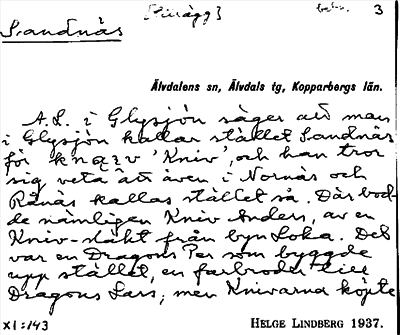 [Tillägg] bebe. 3
Sandnäs
Älvdalens sn, Älvdals tg, Kopparbergs län.
A.L. i Glysjön säger att man
i Glysjön kallar stället Sandnäs
för knązv 'Kniv', och han tror
sig veta att även i Nornäs och
Rånäs kallas stället så. Där bod-
de nämligen Kniv Anders, av en
Kniv-släkt från byn Loka. Det
var en Dragons Per som byggde
upp stället, en farbroder till
Dragons Lars; men Knivarna köpte
XI:143 HELGE LINDBERG 1937.